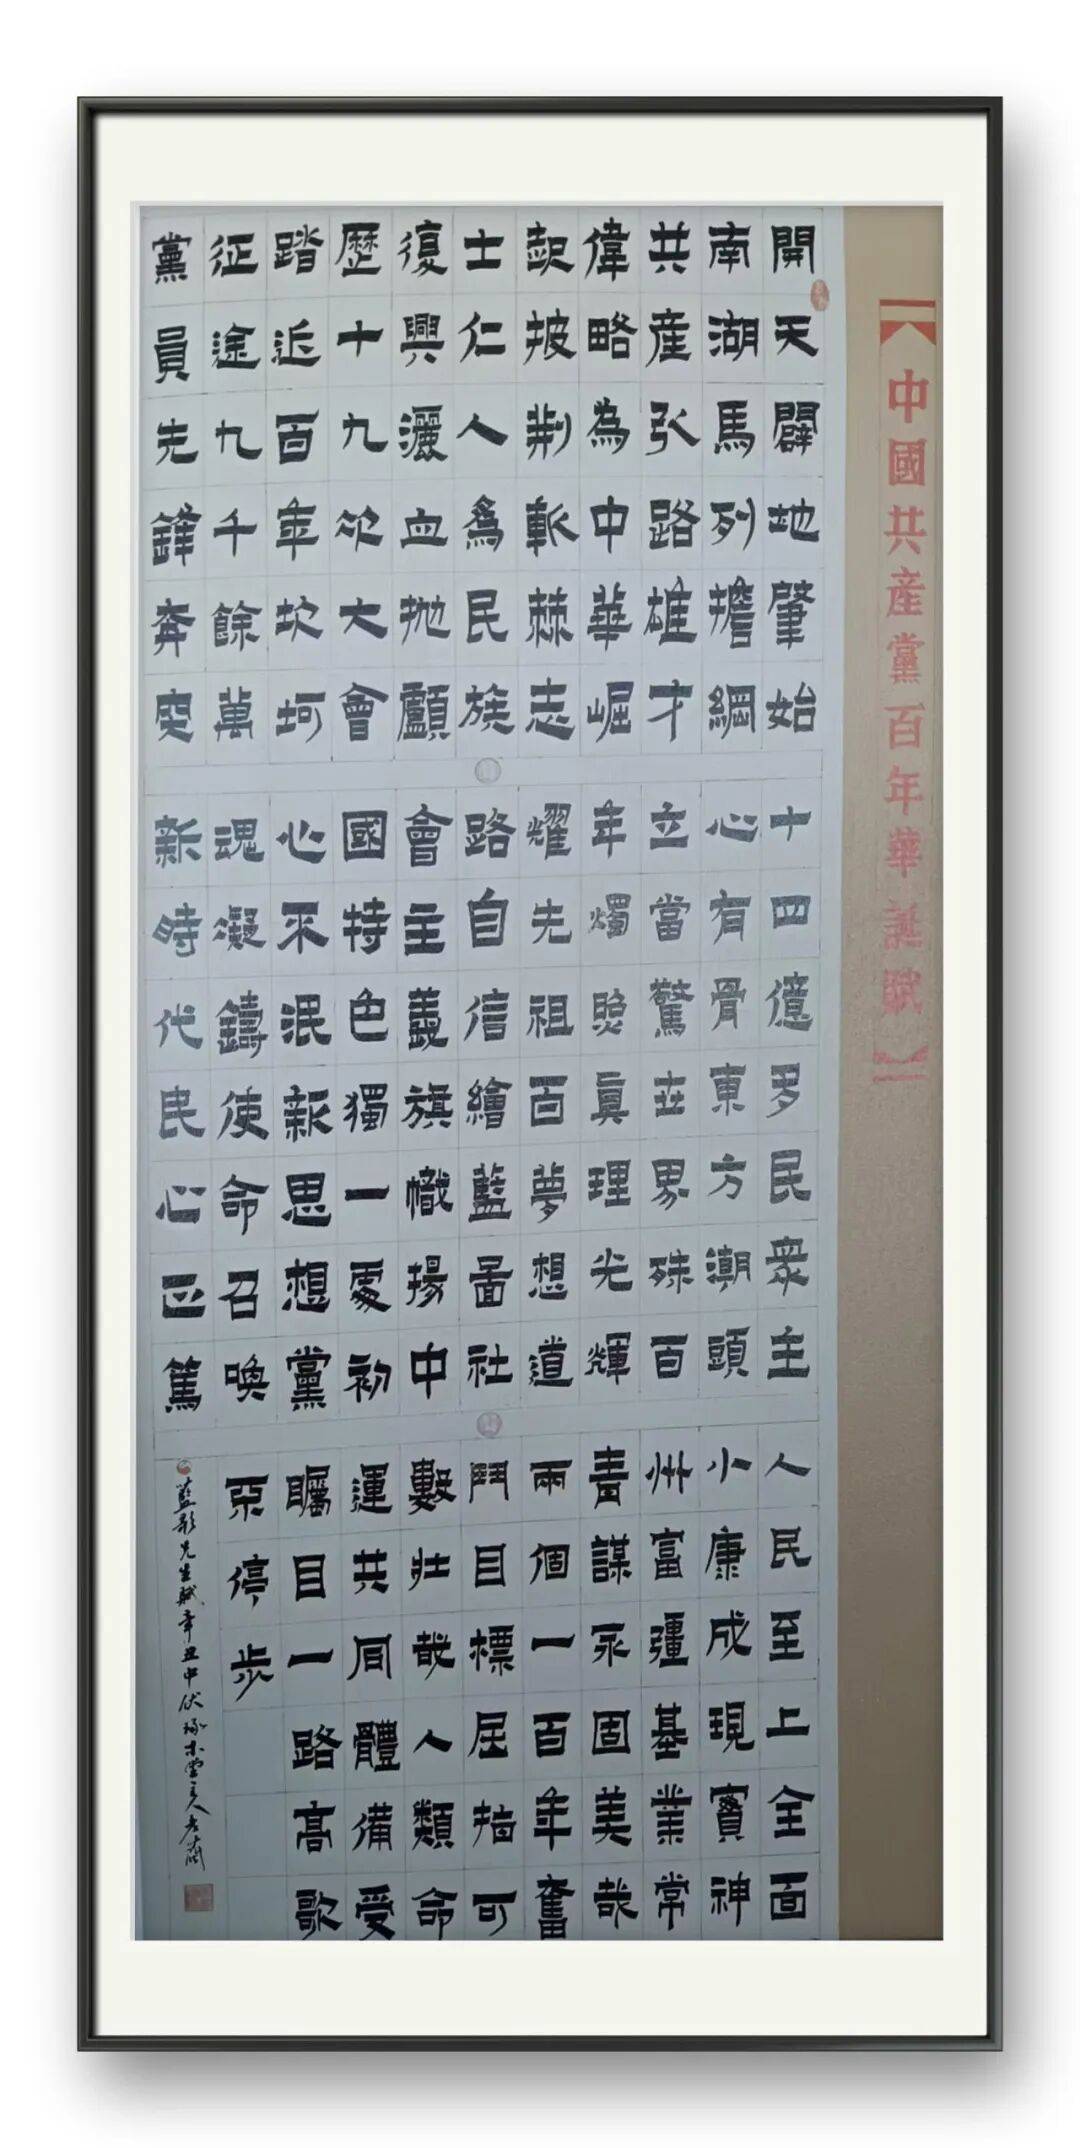 中國共産黨百年華誕賦
開天闢地肇始
南湖馬列擔綱
共産引路雄才
偉略為中華崛
起披荆斬棘志
士仁人爲民族
復興灑血抛顱
歷十九次大會
踏近百年坎坷
征途九千餘萬
黨員先鋒奔突
十四億多民衆主
心有骨東方潮頭
立當驚世界殊百
年燭照真理光輝
耀先祖百夢想道
路自信繪藍圖社
會主義旗幟揚中
國特色獨一處初
心不泯新思想黨
魂凝鑄使命召喚
新時代民心正篤
人民至上全面
小康成現實神
州富彊基業常
青謀永固美哉
兩個一百年奮
鬥目標屈指可
數壯哉人類命
運共同體備受
矚目一路高歌
不停步
藍影先生賦辛丑中伏琢木堂主人